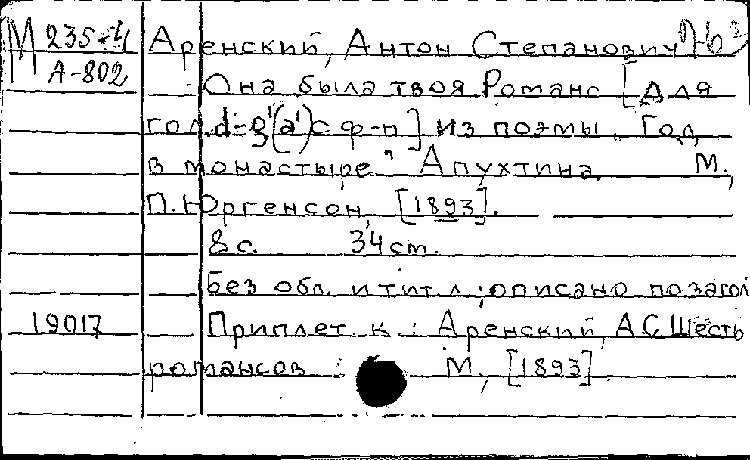 М 235-4 Аренский, Антон Степанович № 3
А-802
Она была твоя Романс [для
гол. d-g¹(a¹) с ф-п] из поэмы „Год
в монастыре" Апухтина. М.,
П. Юргенсон, [1893].
8 с. 34 cm.
Без обл. и тит. л; описано по загол
19017 Приплет. к: Аренский, А С Шесть
романсов М., [1893]